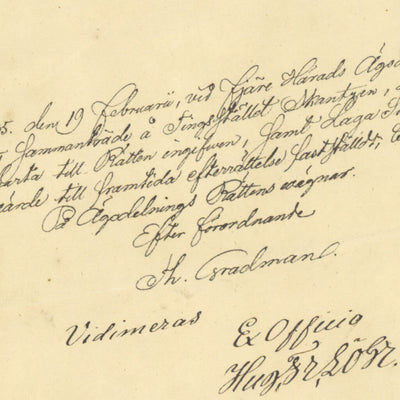 5. den 19 Februarii, vid Fjäre Härads Ägod
Sammanträde å Tingsstället Skantzen,
Karta till Rätten ingifwen, samt Laga
wärde till framtida efterrättelse faststäldt,
På Ägodelnings Rättens wägnar.
Efter förordnande
Th. Gradman.
Vidimeras Ex Officio